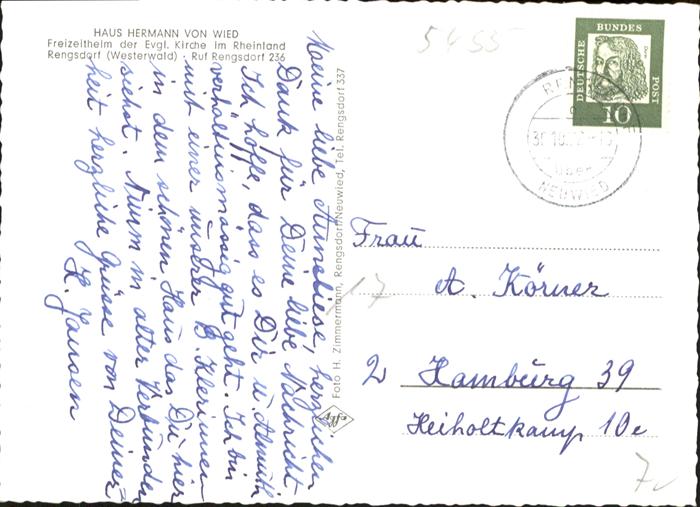 HAUS HERMANN VON WIED
Freizeitheim der Evgl. Kirche im Rheinland
Rengsdorf (Westerwald) · Ruf Rengsdorf 236
5455
DEUTSCHE BUNDES POST
10
NEUWIED
Meine liebe Anneliese, herzlichen
Dank für Deine liebe Nachricht
Ich hoffe, dass es Dir u. Almuth
verhältnismässig gut geht. Ich bin
mit einer unsrer B. Klerinnen
in dem schönen Haus das Du hier
siehst. Nimm in alter Verbunden
heit herzliche Grüsse von Deiner
K. Jansen
Foto H. Zimmermann, Rengsdorf/Neuwied, Tel. Rengsdorf 337
Frau
A. Körner
17
2 Hamburg 39
Heiholtkamp 10e